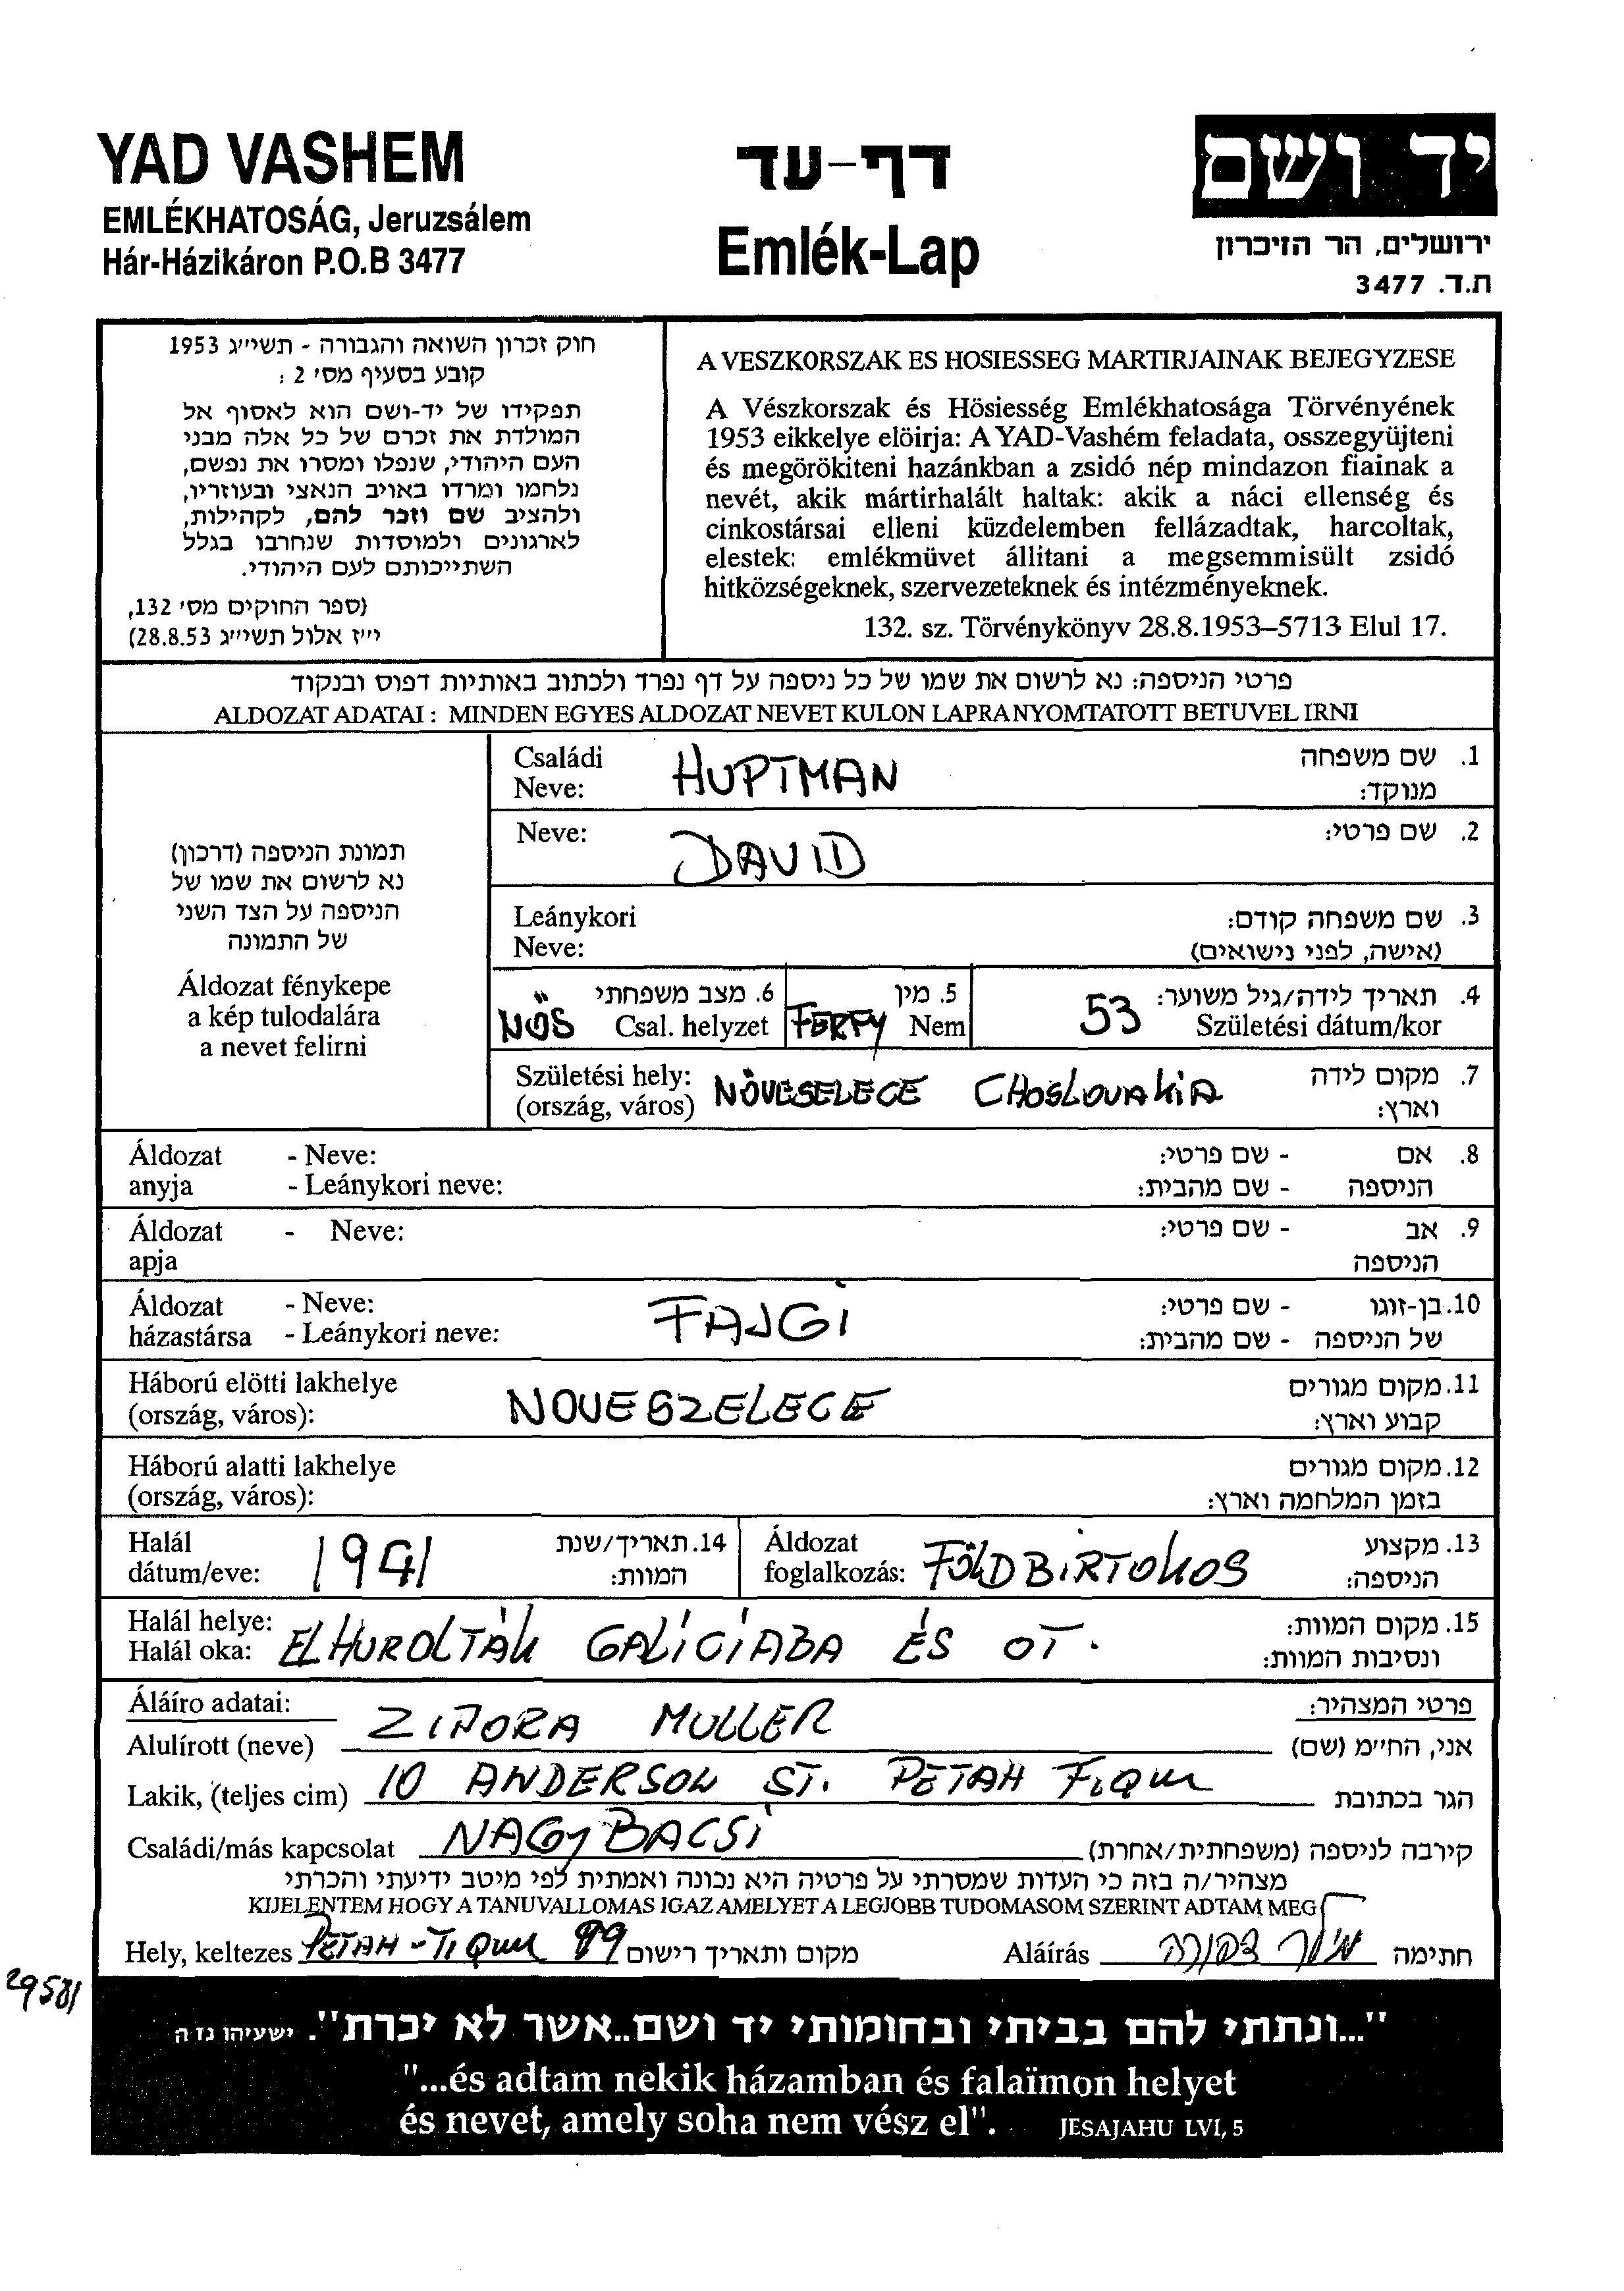 YAD VASHEM
EMLÉKHATOSÁG, Jeruzsálem
Hár-Házikáron P.O.B 3477
דף-עד
Emlék-Lap
יד ושם
ירושלים, הר הזיכרון
ת.ד. 3477
חוק זכרון השואה והגבורה - תשי״ג 1953
קובע בסעיף מס׳ 2 :
תפקידו של יד-ושם הוא לאסוף אל
המולדת את זכרם של כל אלה מבני
העם היהודי, שנפלו ומסרו את נפשם,
נלחמו ומרדו באויב הנאצי ובעוזריו,
ולהציב שם וזכר להם, לקהילות,
לארגונים ולמוסדות שנחרבו בגלל
השתייכותם לעם היהודי.
(ספר החוקים מס׳ 132,
י״ז אלול תשי״ג 28.8.53)
A VESZKORSZAK ES HOSIESSEG MARTIRJAINAK BEJEGYZESE
A Vészkorszak és Hösiesség Emlékhatosága Törvényének
1953 eikkelye elöirja: A YAD-Vashém feladata, osszegyüjteni
és megörökiteni hazánkban a zsidó nép mindazon fiainak a
nevét, akik mártirhalált haltak: akik a náci ellenség és
cinkostársai elleni küzdelemben fellázadtak, harcoltak,
elestek: emlékmüvet állitani a megsemmisült zsidó
hitközségeknek, szervezeteknek és intézményeknek.
132. sz. Törvénykönyv 28.8.1953–5713 Elul 17.
פרטי הניספה: נא לרשום את שמו של כל ניספה על דף נפרד ולכתוב באותיות דפוס ובנקוד
ALDOZAT ADATAI : MINDEN EGYES ALDOZAT NEVET KULON LAPRA NYOMTATOTT BETUVEL IRNI
תמונת הניספה (דרכון)
נא לרשום את שמו של
הניספה על הצד השני
של התמונה
Áldozat fénykepe
a kép tulodalára
a nevet felirni
Családi HUPTMAN 1. שם משפחה
Neve: מנוקד:
Neve: DAVID 2. שם פרטי:
Leánykori 3. שם משפחה קודם:
Neve: (אישה, לפני נישואים)
NŐS 6. מצב משפחתי FERFY 5. מין 53 4. תאריך לידה/גיל משוער:
Csal. helyzet Nem Születési dátum/kor
Születési hely: NÖVESELECE CHOSLOVAKIA 7. מקום לידה
(ország, város) וארץ:
Áldozat - Neve: - שם פרטי: 8. אם
anyja - Leánykori neve: - שם מהבית: הניספה
Áldozat - Neve: - שם פרטי: 9. אב
apja הניספה
Áldozat - Neve: FAJGI - שם פרטי: 10. בן-זוגו
házastársa - Leánykori neve: - שם מהבית: של הניספה
Háború elötti lakhelye NOVESZELECE 11. מקום מגורים
(ország, város): קבוע וארץ:
Háború alatti lakhelye 12. מקום מגורים
(ország, város): בזמן המלחמה וארץ:
Halál 1941 14. תאריך/שנת Áldozat FÖLDBIRTOKOS 13. מקצוע
dátum/eve: המוות: foglalkozás: הניספה:
Halál helye: ELHUROLTÁK GALÍCIÁBA ÉS OTT. 15. מקום המוות:
Halál oka: ונסיבות המוות:
Áláíro adatai: פרטי המצהיר:
Alulírott (neve) ZIPORA MULLER אני, החי״מ (שם)
Lakik, (teljes cim) 10 ANDERSON ST. PETAH TIQUA הגר בכתובת
Családi/más kapcsolat NAGYBACSI קירבה לניספה (משפחתית/אחרת)
מצהיר/ה בזה כי העדות שמסרתי על פרטיה היא נכונה ואמתית לפי מיטב ידיעתי והכרתי
KIJELENTEM HOGY A TANUVALLOMAS IGAZ AMELYET A LEGJOBB TUDOMASOM SZERINT ADTAM MEG
Hely, keltezes PETAH-TIQUA 99 מקום ותאריך רישום Aláírás מילר ציפורה חתימה
29581
"...ונתתי להם בביתי ובחומותי יד ושם..אשר לא יכרת". ישעיהו נז ה
"...és adtam nekik házamban és falaïmon helyet
és nevet, amely soha nem vész el". JESAJAHU LVI, 5